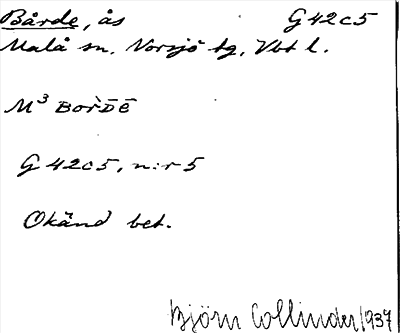 Bårde, ås G42c5
Malå sn. Norsjö tg, Vbt l.
M³ BORˋD̄Ē
G42c5, n:r 5
Okänd bet.
Björn Collinder 1937